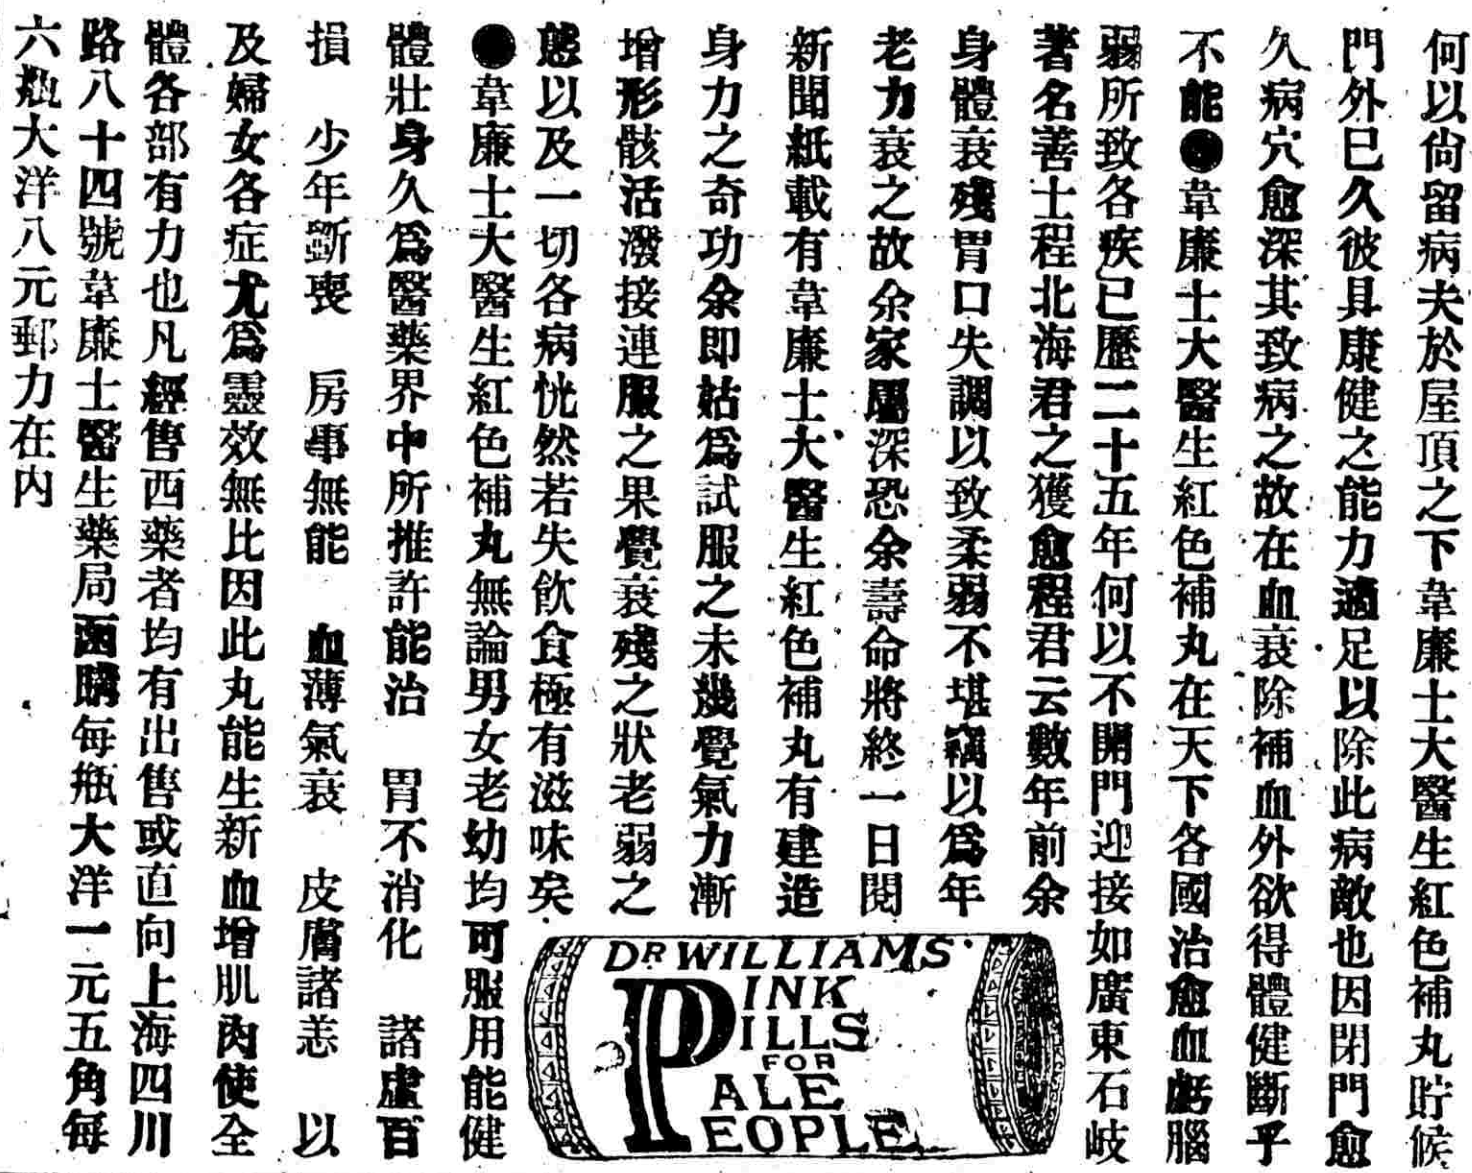 何以尙留病夫於屋頂之下韋廉士大醫生紅色補丸貯候
門外已久彼具康健之能力適足以除此病敵也因閉門愈
久病穴愈深其致病之故在血衰除補血外欲得體健斷乎
不能●韋廉士大醫生紅色補丸在天下各國治愈血虧腦
弱所致各疾已歷二十五年何以不開門迎接如廣東石岐
著名善士程北海君之獲愈程君云數年前余
身體衰殘胃口失調以致柔弱不堪竊以爲年
老力衰之故余家屬深恐余壽命將終一日閱
新聞紙載有韋廉士大醫生紅色補丸有建造
身力之奇功余即姑爲試服之未幾覺氣力漸
增形骸活潑接連服之果覺衰殘之狀老弱之
態以及一切各病恍然若失飲食極有滋味矣
●韋廉士大醫生紅色補丸無論男女老幼均可服用能健
體壯身久爲醫藥界中所推許能治　胃不消化　諸虛百
損　少年斲喪　房事無能　血薄氣衰　皮膚諸恙　以
及婦女各症尤爲靈效無比因此丸能生新血增肌肉使全
體各部有力也凡經售西藥者均有出售或直向上海四川
路八十四號韋廉士醫生藥局函購每瓶大洋一元五角每
六瓶大洋八元郵力在內
DR WILLIAMS'
PINK
PILLS
FOR
PALE
PEOPLE